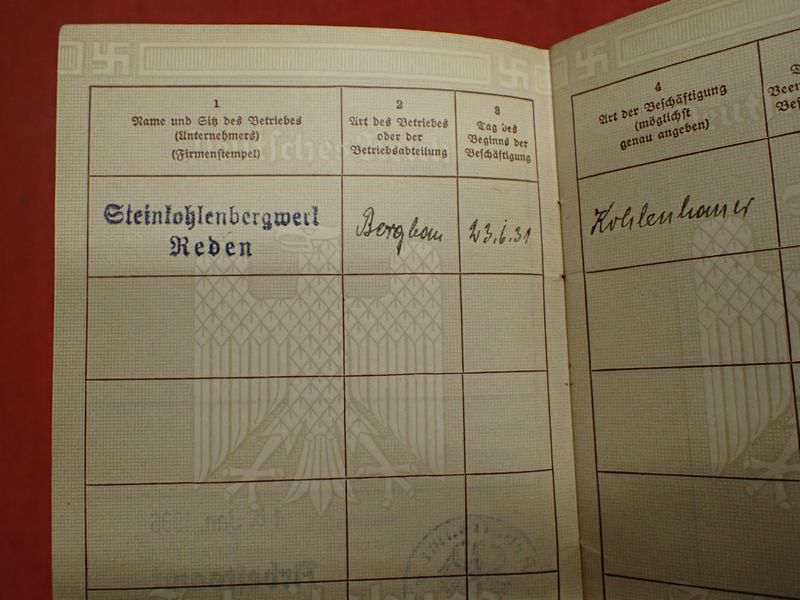 1
Name und Sitz des Betriebes
(Unternehmers)
(Firmenstempel)
2
Art des Betriebes
oder der
Betriebsabteilung
3
Tag des
Beginns der
Beschäftigung
4
Art der Beschäftigung
(möglichst
genau angeben)
Steinkohlenbergwerk
Reden
Bergbau
23.6.31
Kohlenhauer